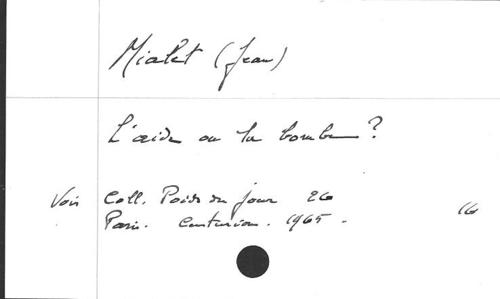 Mialet (Jean)
L'aide ou la bombe ?
Voir Coll. Poids du jour 26
Paris. Centurion. 1965. 16